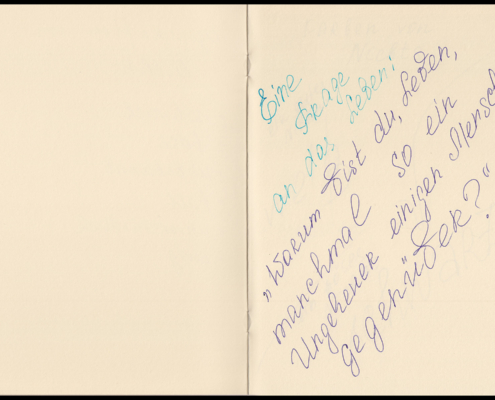 Eine
Frage
an das Leben:
„Warum bist du, Leben,
manchmal so ein
Ungeheuer einigen Mensch
gegenüber?“